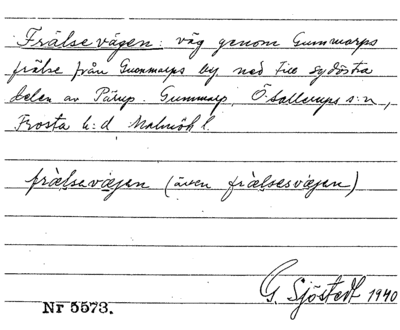 Frälsevägen: väg genom Gummarps
frälse från Gummarps by ned till sydöstra
delen av Pärup. Gummarp, Ö. Sallerups s:n,
Frosta h:d Malmöh l.
frälsevägen (även frälsesvägen)
G. Sjöstedt 1940
Nr 5573.